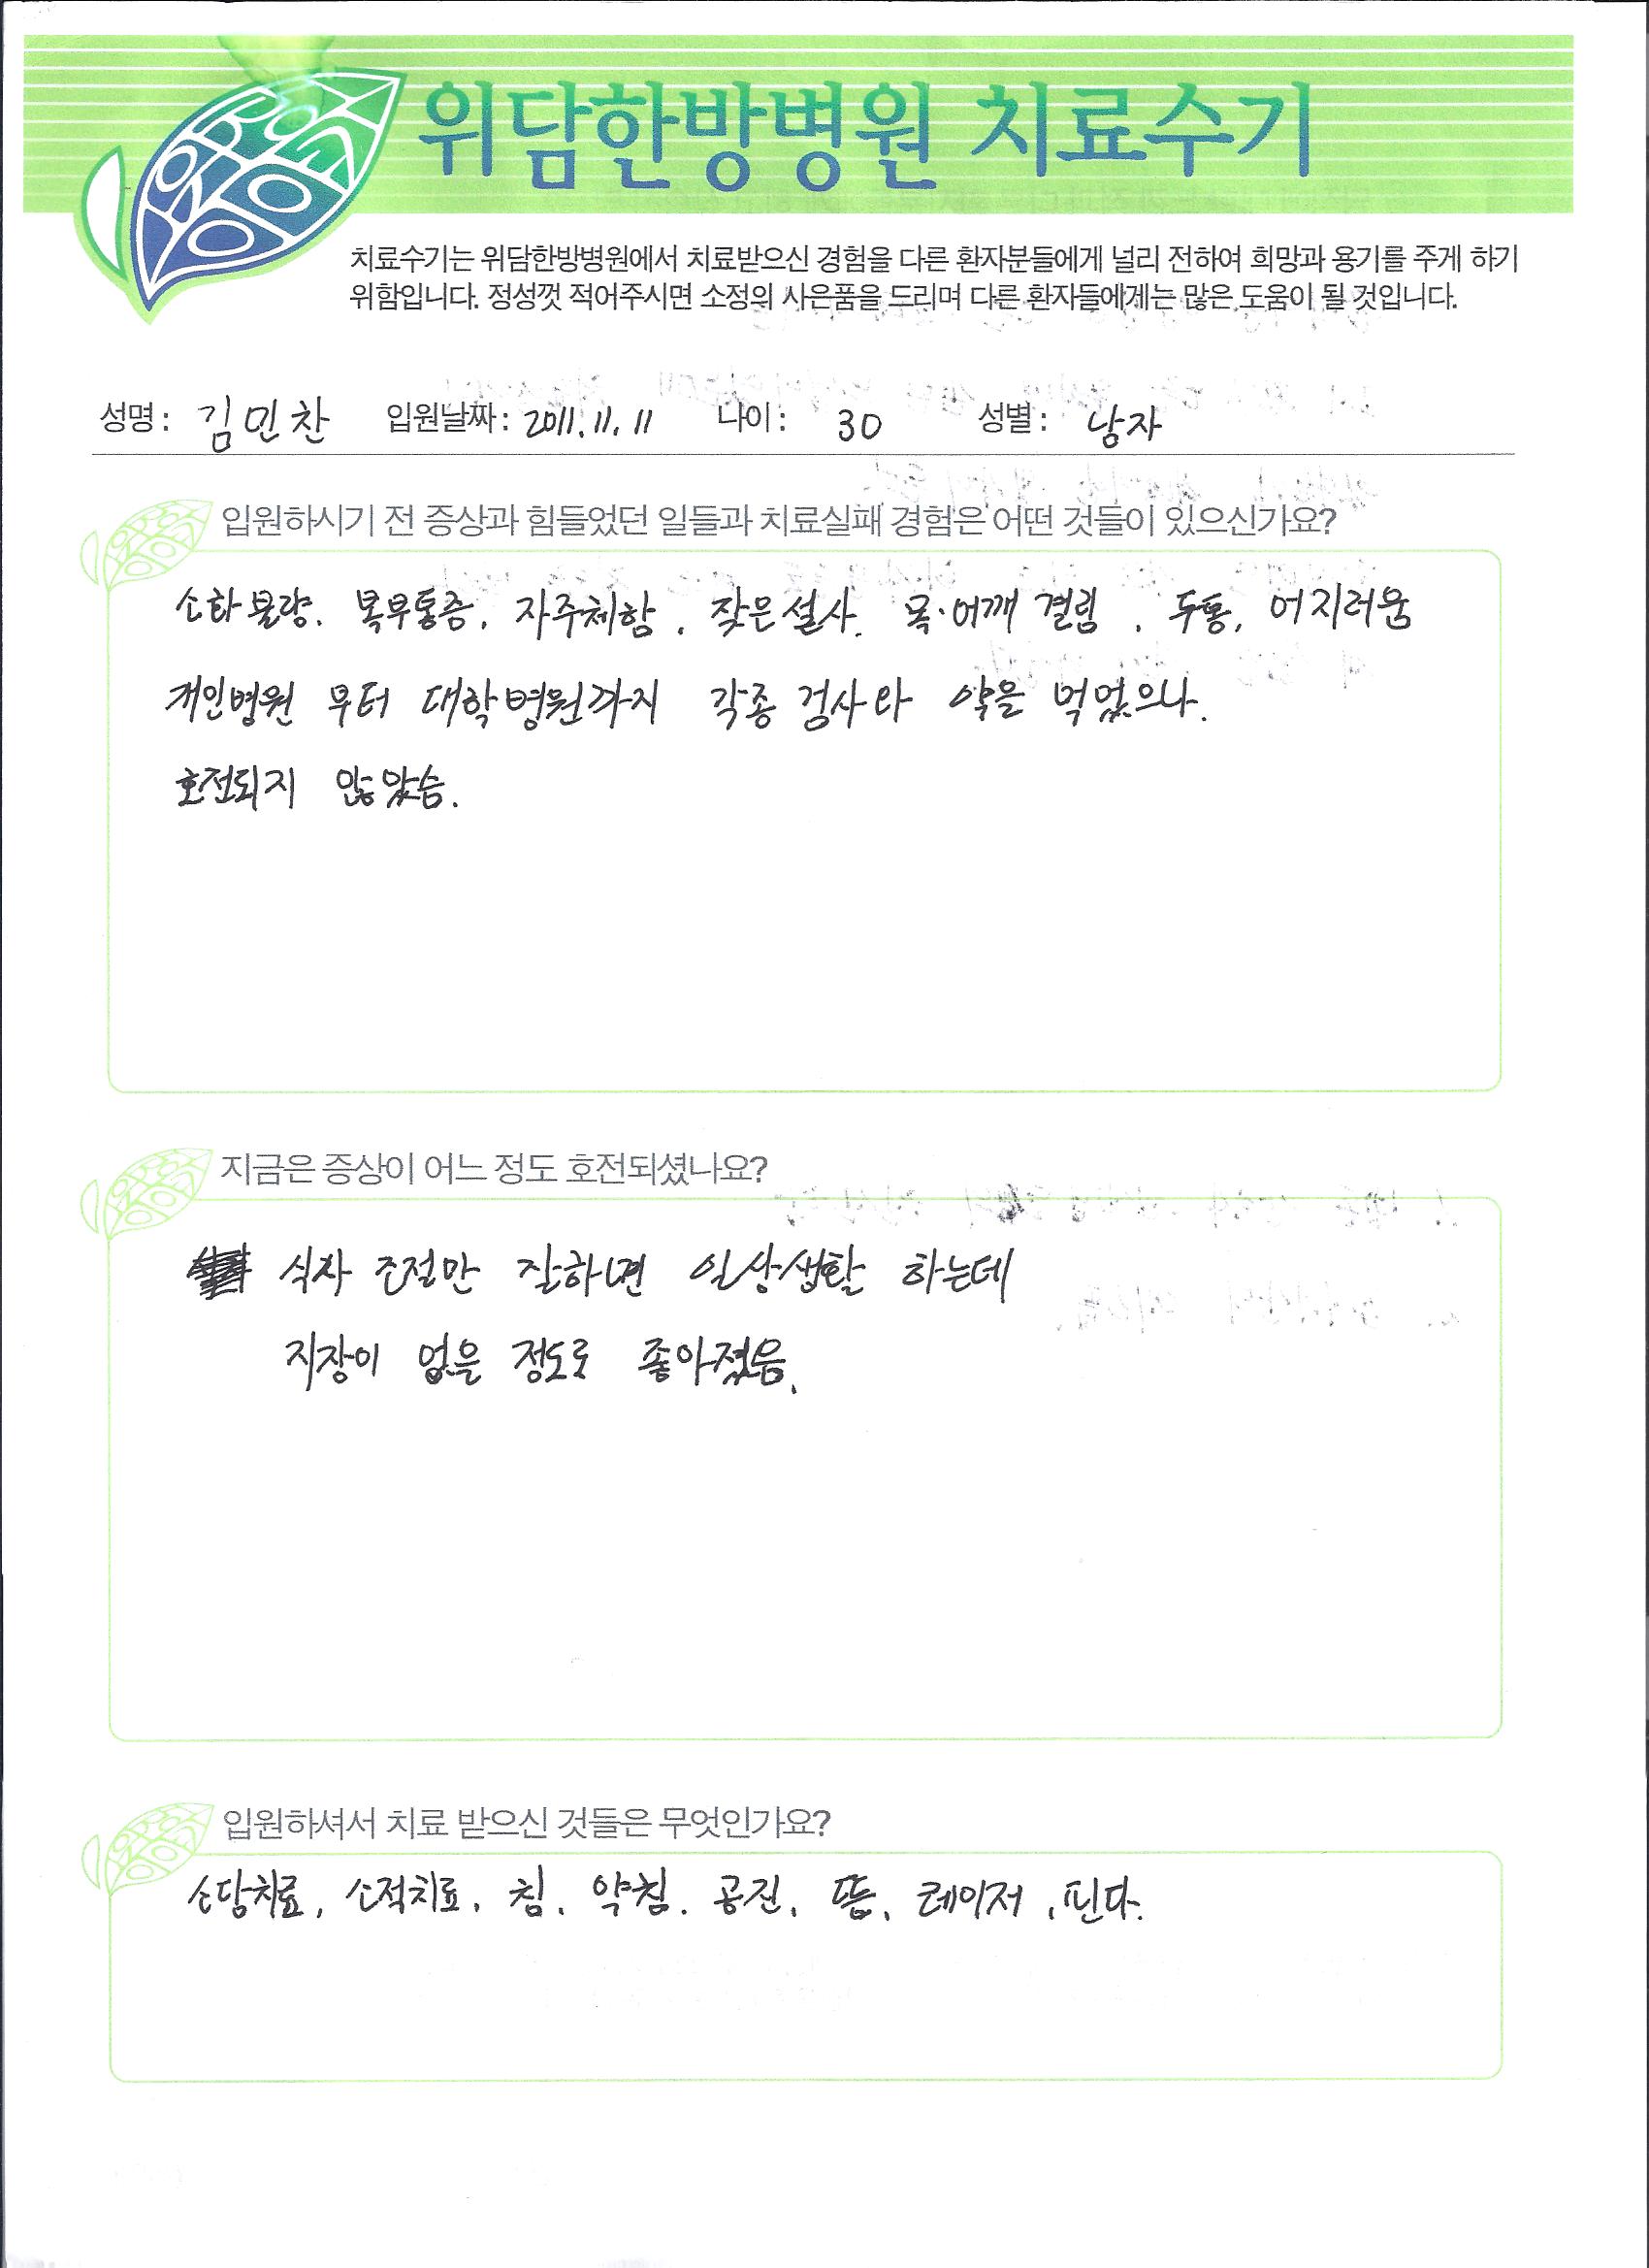 위담한방병원 치료수기
치료수기는 위담한방병원에서 치료받으신 경험을 다른 환자분들에게 널리 전하여 희망과 용기를 주게 하기
위함입니다. 정성껏 적어주시면 소정의 사은품을 드리며 다른 환자들에게는 많은 도움이 될 것입니다.
성명 : 김민찬 입원날짜 : 2011. 11. 11 나이 : 30 성별 : 남자
입원하시기 전 증상과 힘들었던 일들과 치료실패 경험은 어떤 것들이 있으신가요?
소화불량. 복부통증. 자주체함. 잦은설사. 목·어깨 결림. 두통. 어지러움
개인병원 부터 대학병원까지 각종 검사와 약을 먹었으나.
호전되지 않았슴.
지금은 증상이 어느 정도 호전되셨나요?
식사 조절만 잘하면 일상생활 하는데
지장이 없을 정도로 좋아졌음.
입원하셔서 치료 받으신 것들은 무엇인가요?
소담치료, 소적치료. 침. 약침. 공진. 뜸. 레이저. 핀다.